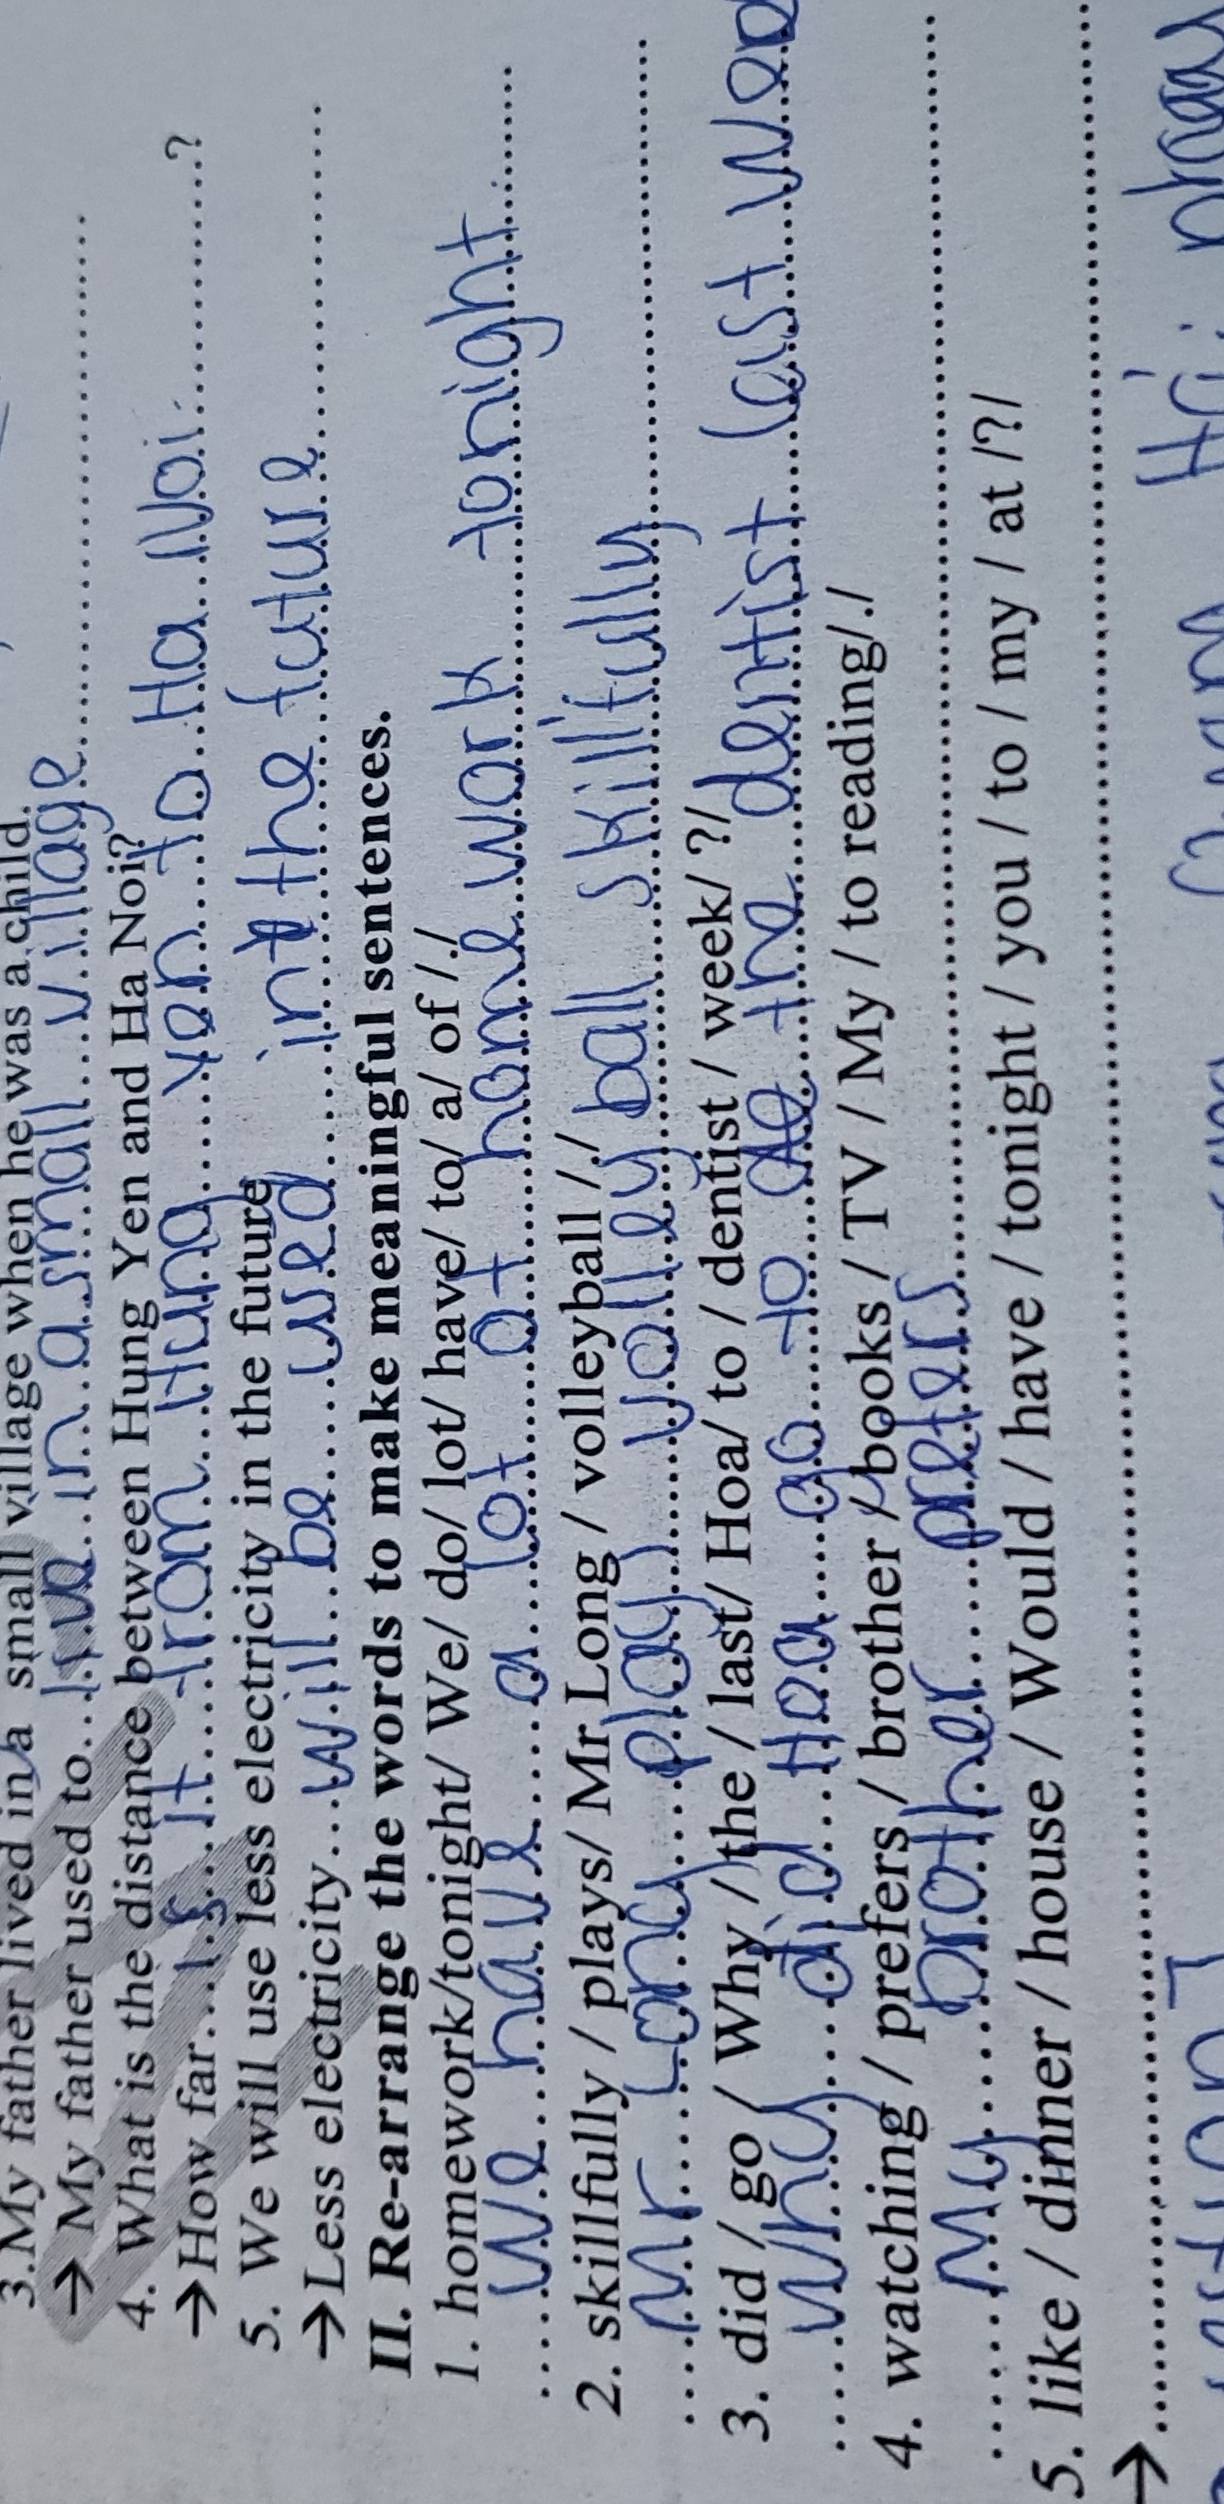 3.My father lived in a small village when he was a child.
→ My father used to....live in a small village
4. What is the distance between Hung Yen and Ha Noi?
→How far....is it from Hung yen to Ha Noi............?
5. We will use less electricity in the future
→Less electricity....will be used in the future
II. Re-arrange the words to make meaningful sentences.
1. homework/tonight/ We/ do/ lot/ have/ to/ a/ of /./
We have a lot of home work tonight
2. skillfully / plays/ Mr Long / volleyball /./
Mr Long play volley ball skillfully
3. did / go / Why / the / last/ Hoa/ to / dentist / week/ ?/
Why did Hoa go to the dentist last
4. watching / prefers / brother / books / TV / My / to reading/ ./
My brother prefers
5. like / dinner / house / Would / have / tonight / you / to / my / at /?/
→